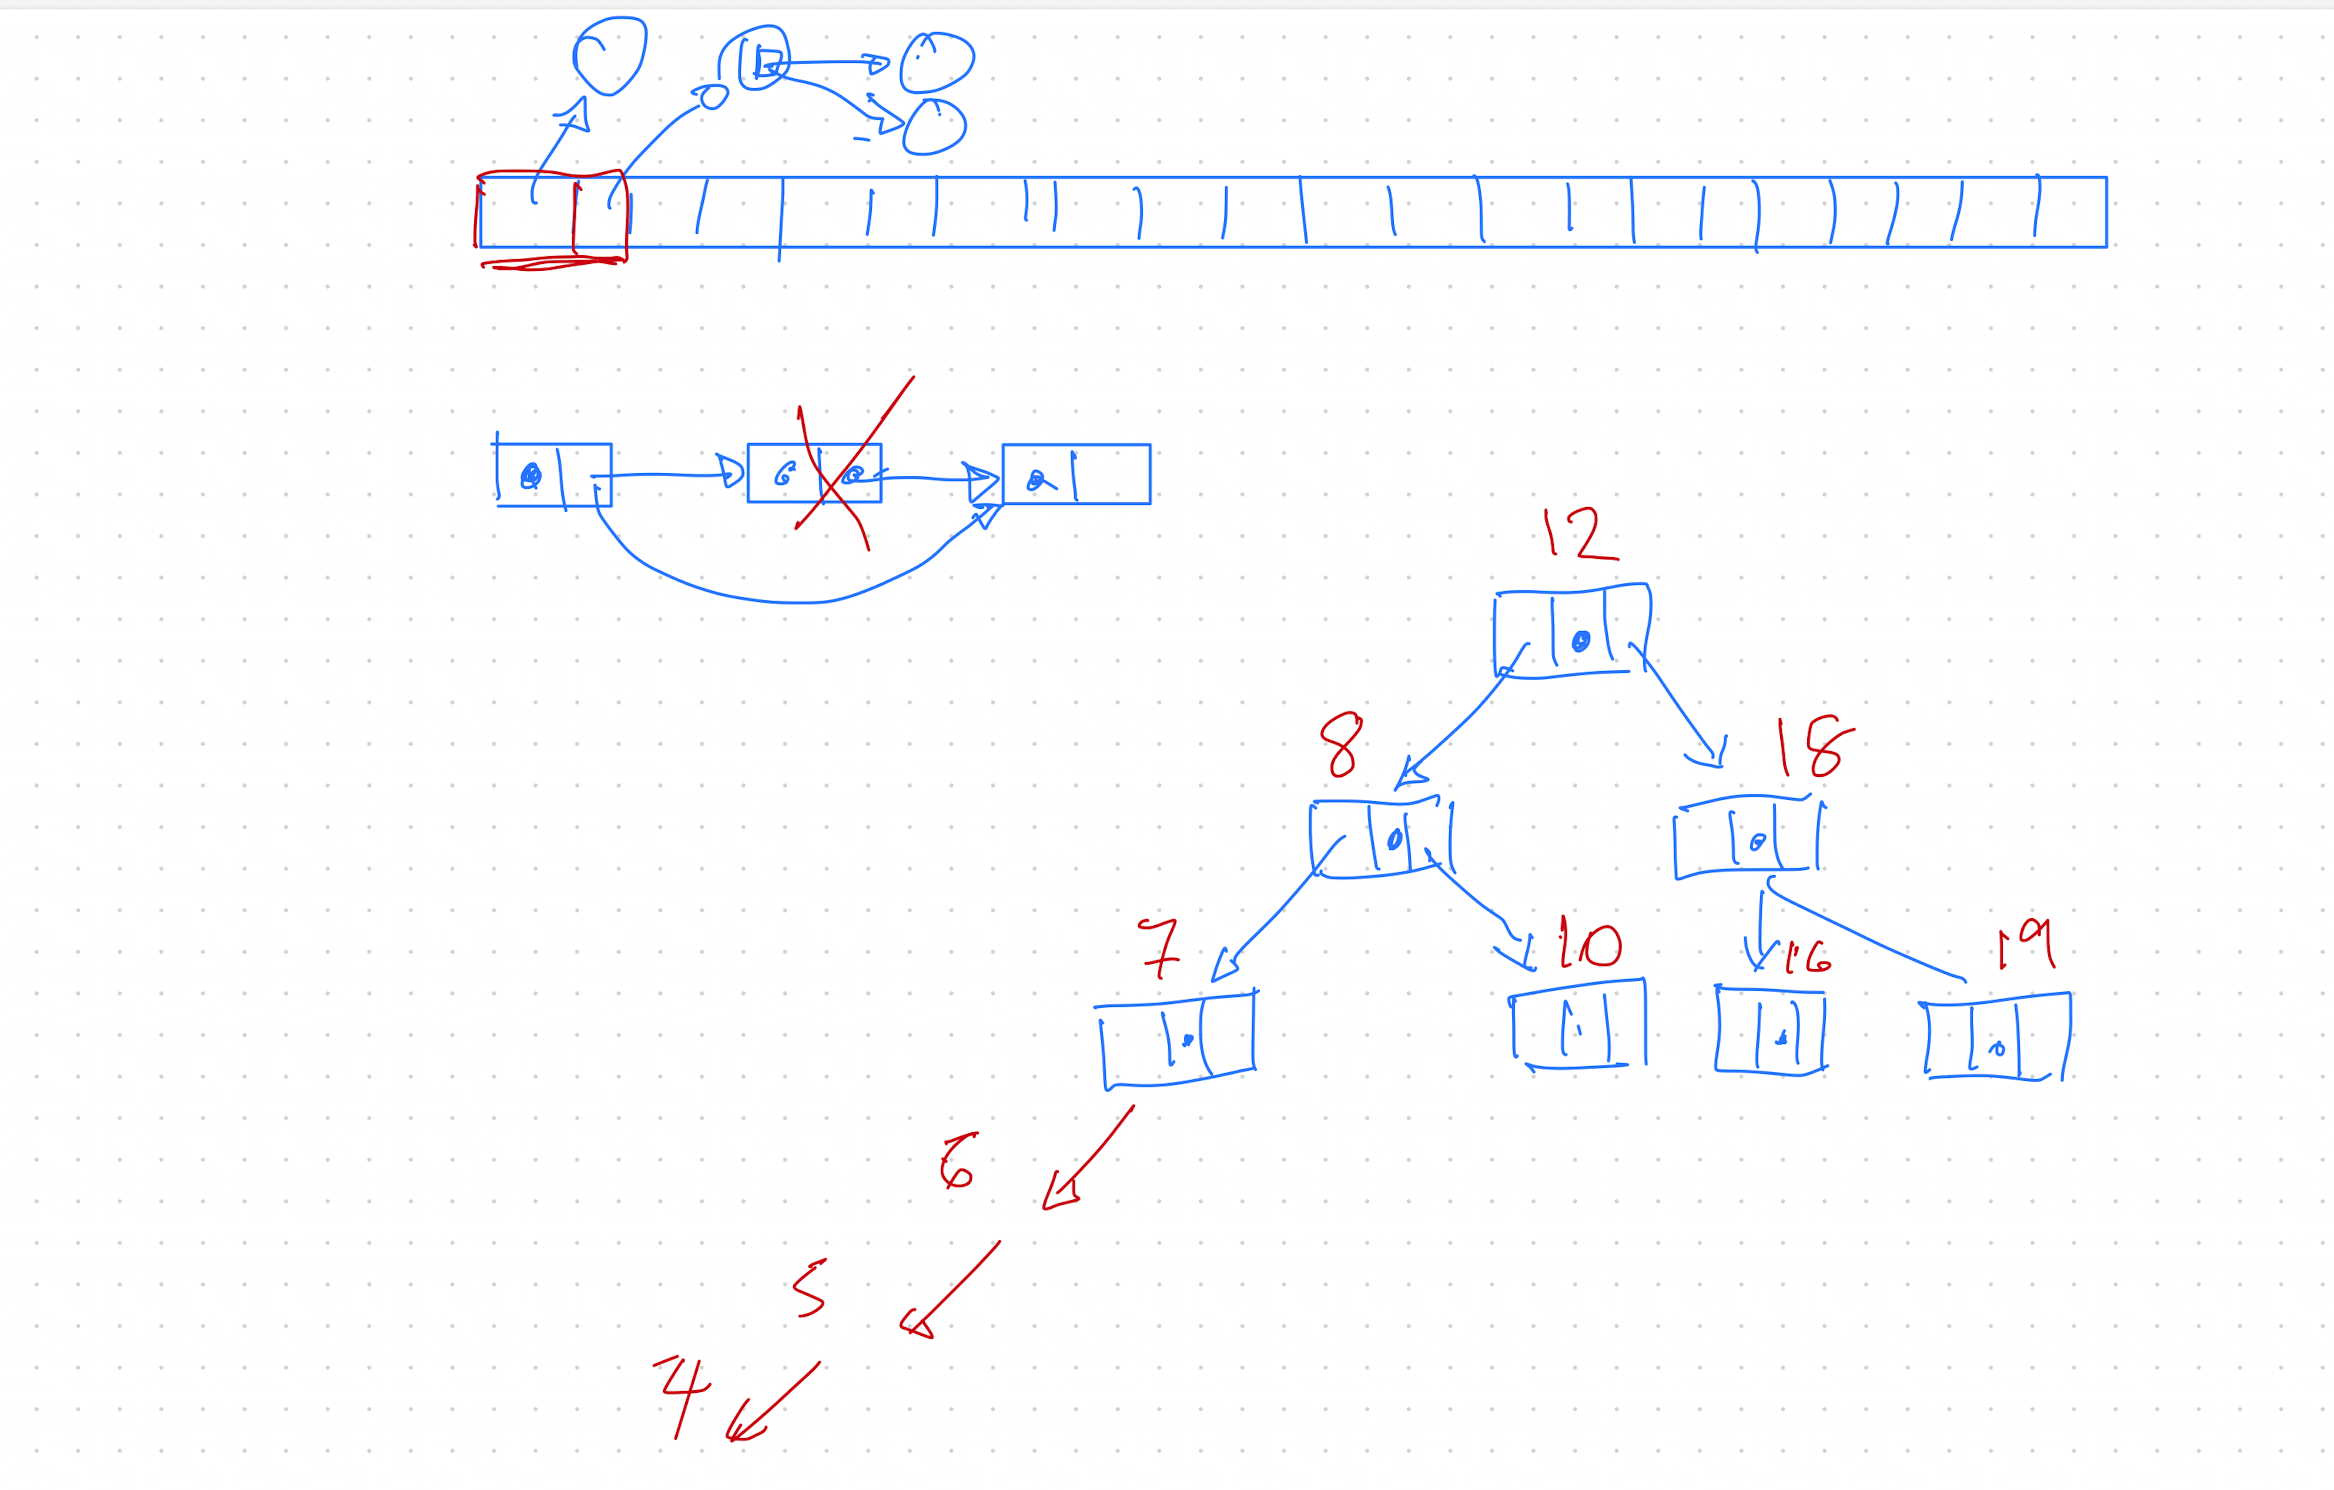 12
8 18
7 10 16 19
6
5
4